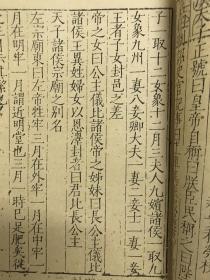 子正號曰皇帝
子一取十二女象十二月三夫人九嬪諸侯一取九
女象九州一妻八妾卿大夫一妻二妾士一妻一妾
王者子女封邑之差
帝之女曰公主儀比諸侯帝之姊妹曰長公主儀比諸
侯王異姓婦女以恩澤封者曰君比長公主
天子諸侯宗廟之別名
左宗廟東曰左帝牲牢三月在外牢一月在中牢一
月在明牢一月謂近明堂也三月一時已足肥矣徒